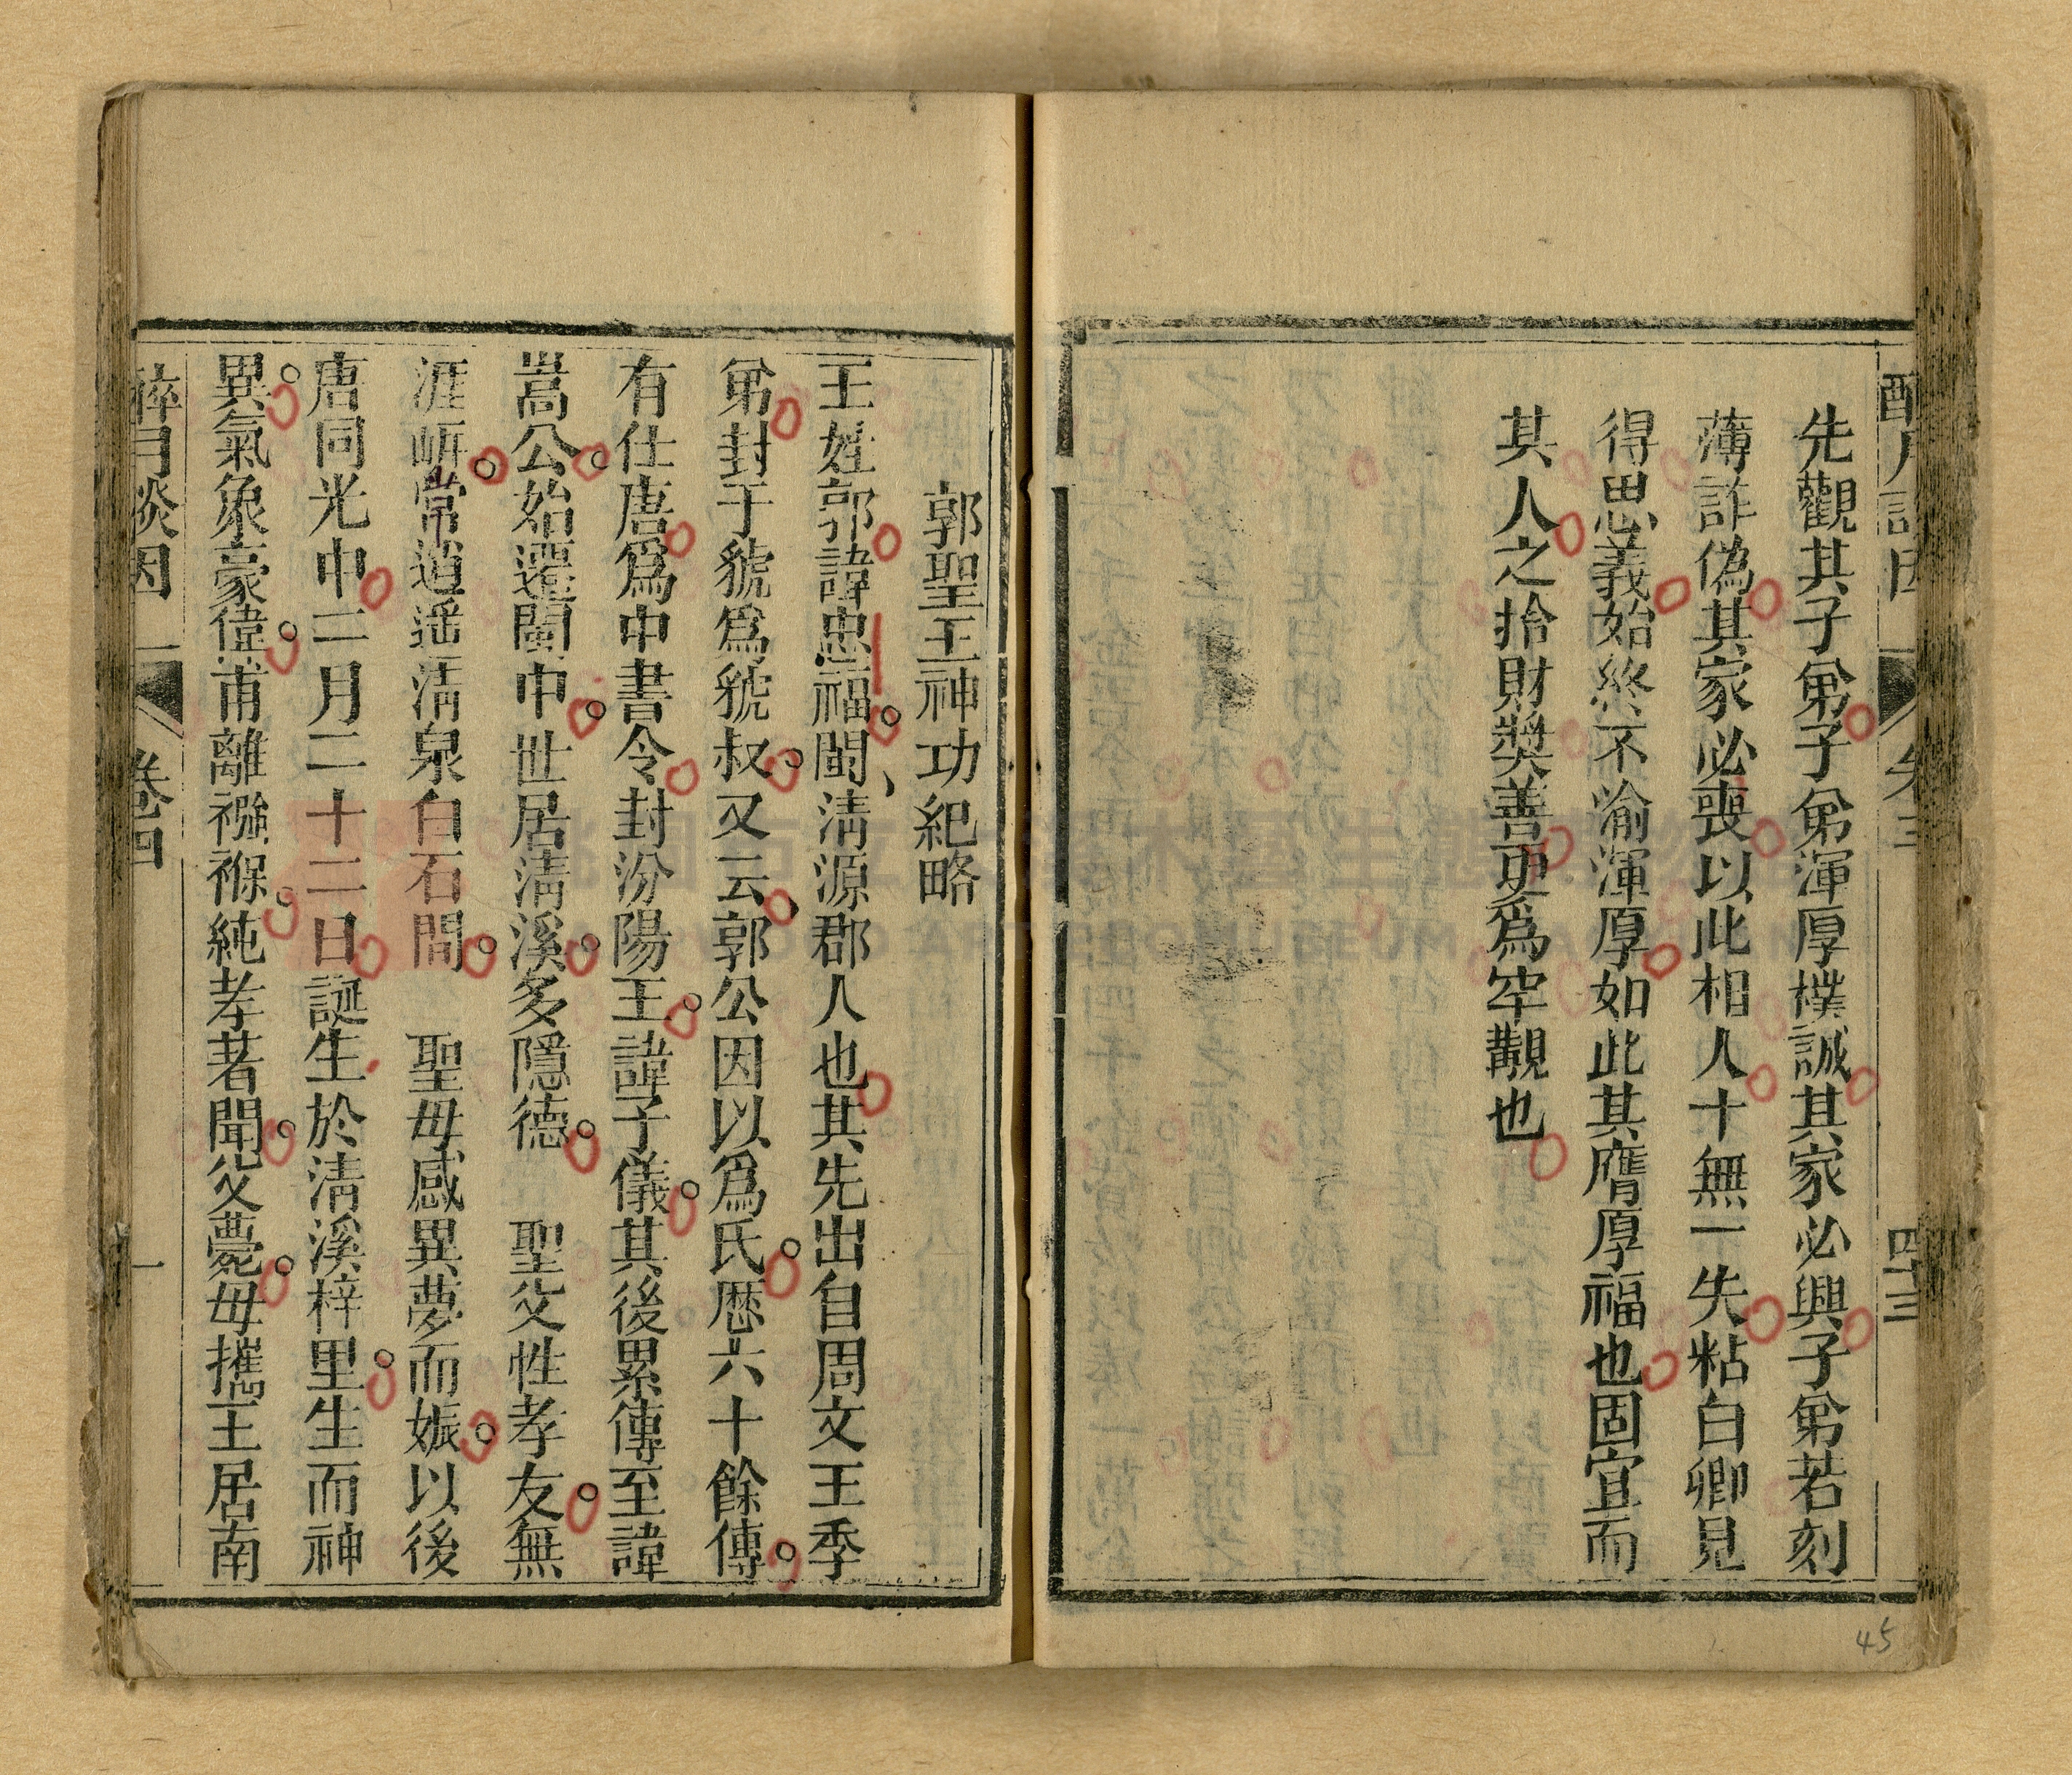 先觀其子弟子弟渾厚樸誠其家必興子弟若刻
薄詐偽其家必喪以此相人十無一失粘白卿見
得思義始終不渝渾厚如此其膺厚福也固宜而
其人之捨財獎善更為罕覯也
四十三
郭聖王神功紀略
王姓郭諱忠福閩清源郡人也其先出自周文王季
弟封于虢為虢叔又云郭公因以為氏歷六十餘傳
有仕唐為中書令封汾陽王諱子儀其後累傳至諱
嵩公始遷閩中世居清溪多隱德 聖父性孝友無
涯㟁常逍遥清泉白石間 聖母感異夢而娠以後
唐同光中二月二十二日誕生於清溪梓里生而神
異氣象豪偉甫離襁褓純孝著聞父薨母攜王居南
醉月談因 卷四 一
45